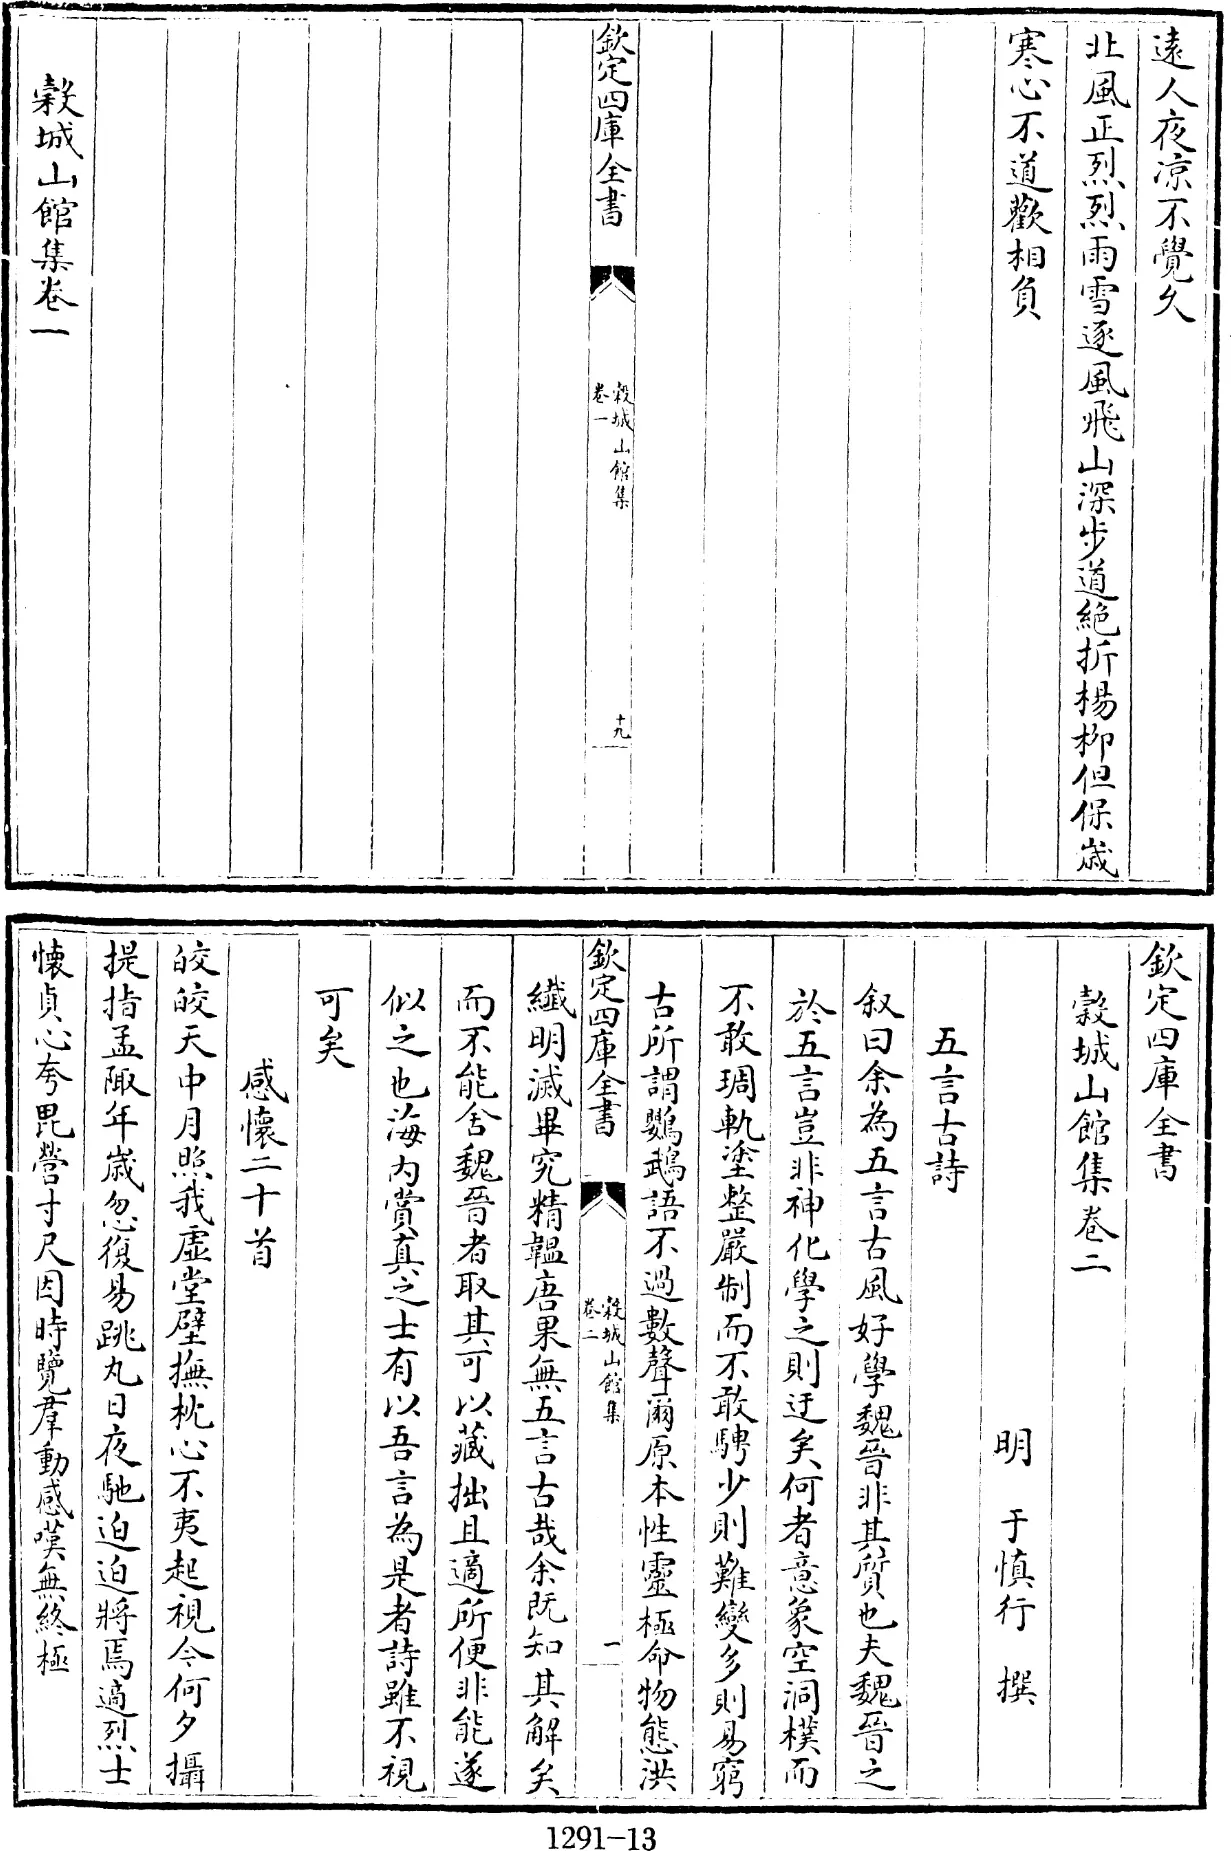 遠人夜凉不覺久
北風正烈烈雨雪逐風飛山深步道絶折楊柳但保歲
寒心不道歡相負
欽定四庫全書
榖城山館集
卷一
十九
榖城山館集卷一
欽定四庫全書
榖城山館集卷二
明 于慎行 撰
五言古詩
叙曰余為五言古風好學魏晉非其質也夫魏晉之
於五言豈非神化學之則迂矣何者意象空洞樸而
不敢琱軌塗整嚴制而不敢騁少則難變多則易窮
古所謂鸚鵡語不過數聲爾原本性靈極命物態洪
欽定四庫全書
榖城山館集
卷二
一
纖明滅畢究精韞唐果無五言古哉余既知其解矣
而不能舍魏晉者取其可以藏拙且適所便非能遂
似之也海内賞真之士有以吾言為是者詩雖不視
可矣
感懷二十首
皎皎天中月照我虚堂壁撫枕心不夷起視今何夕攝
提指孟陬年歲忽復易跳丸日夜馳迫迫將焉適烈士
懷貞心夸毘營寸尺因時覽羣動感嘆無終極
1291-13